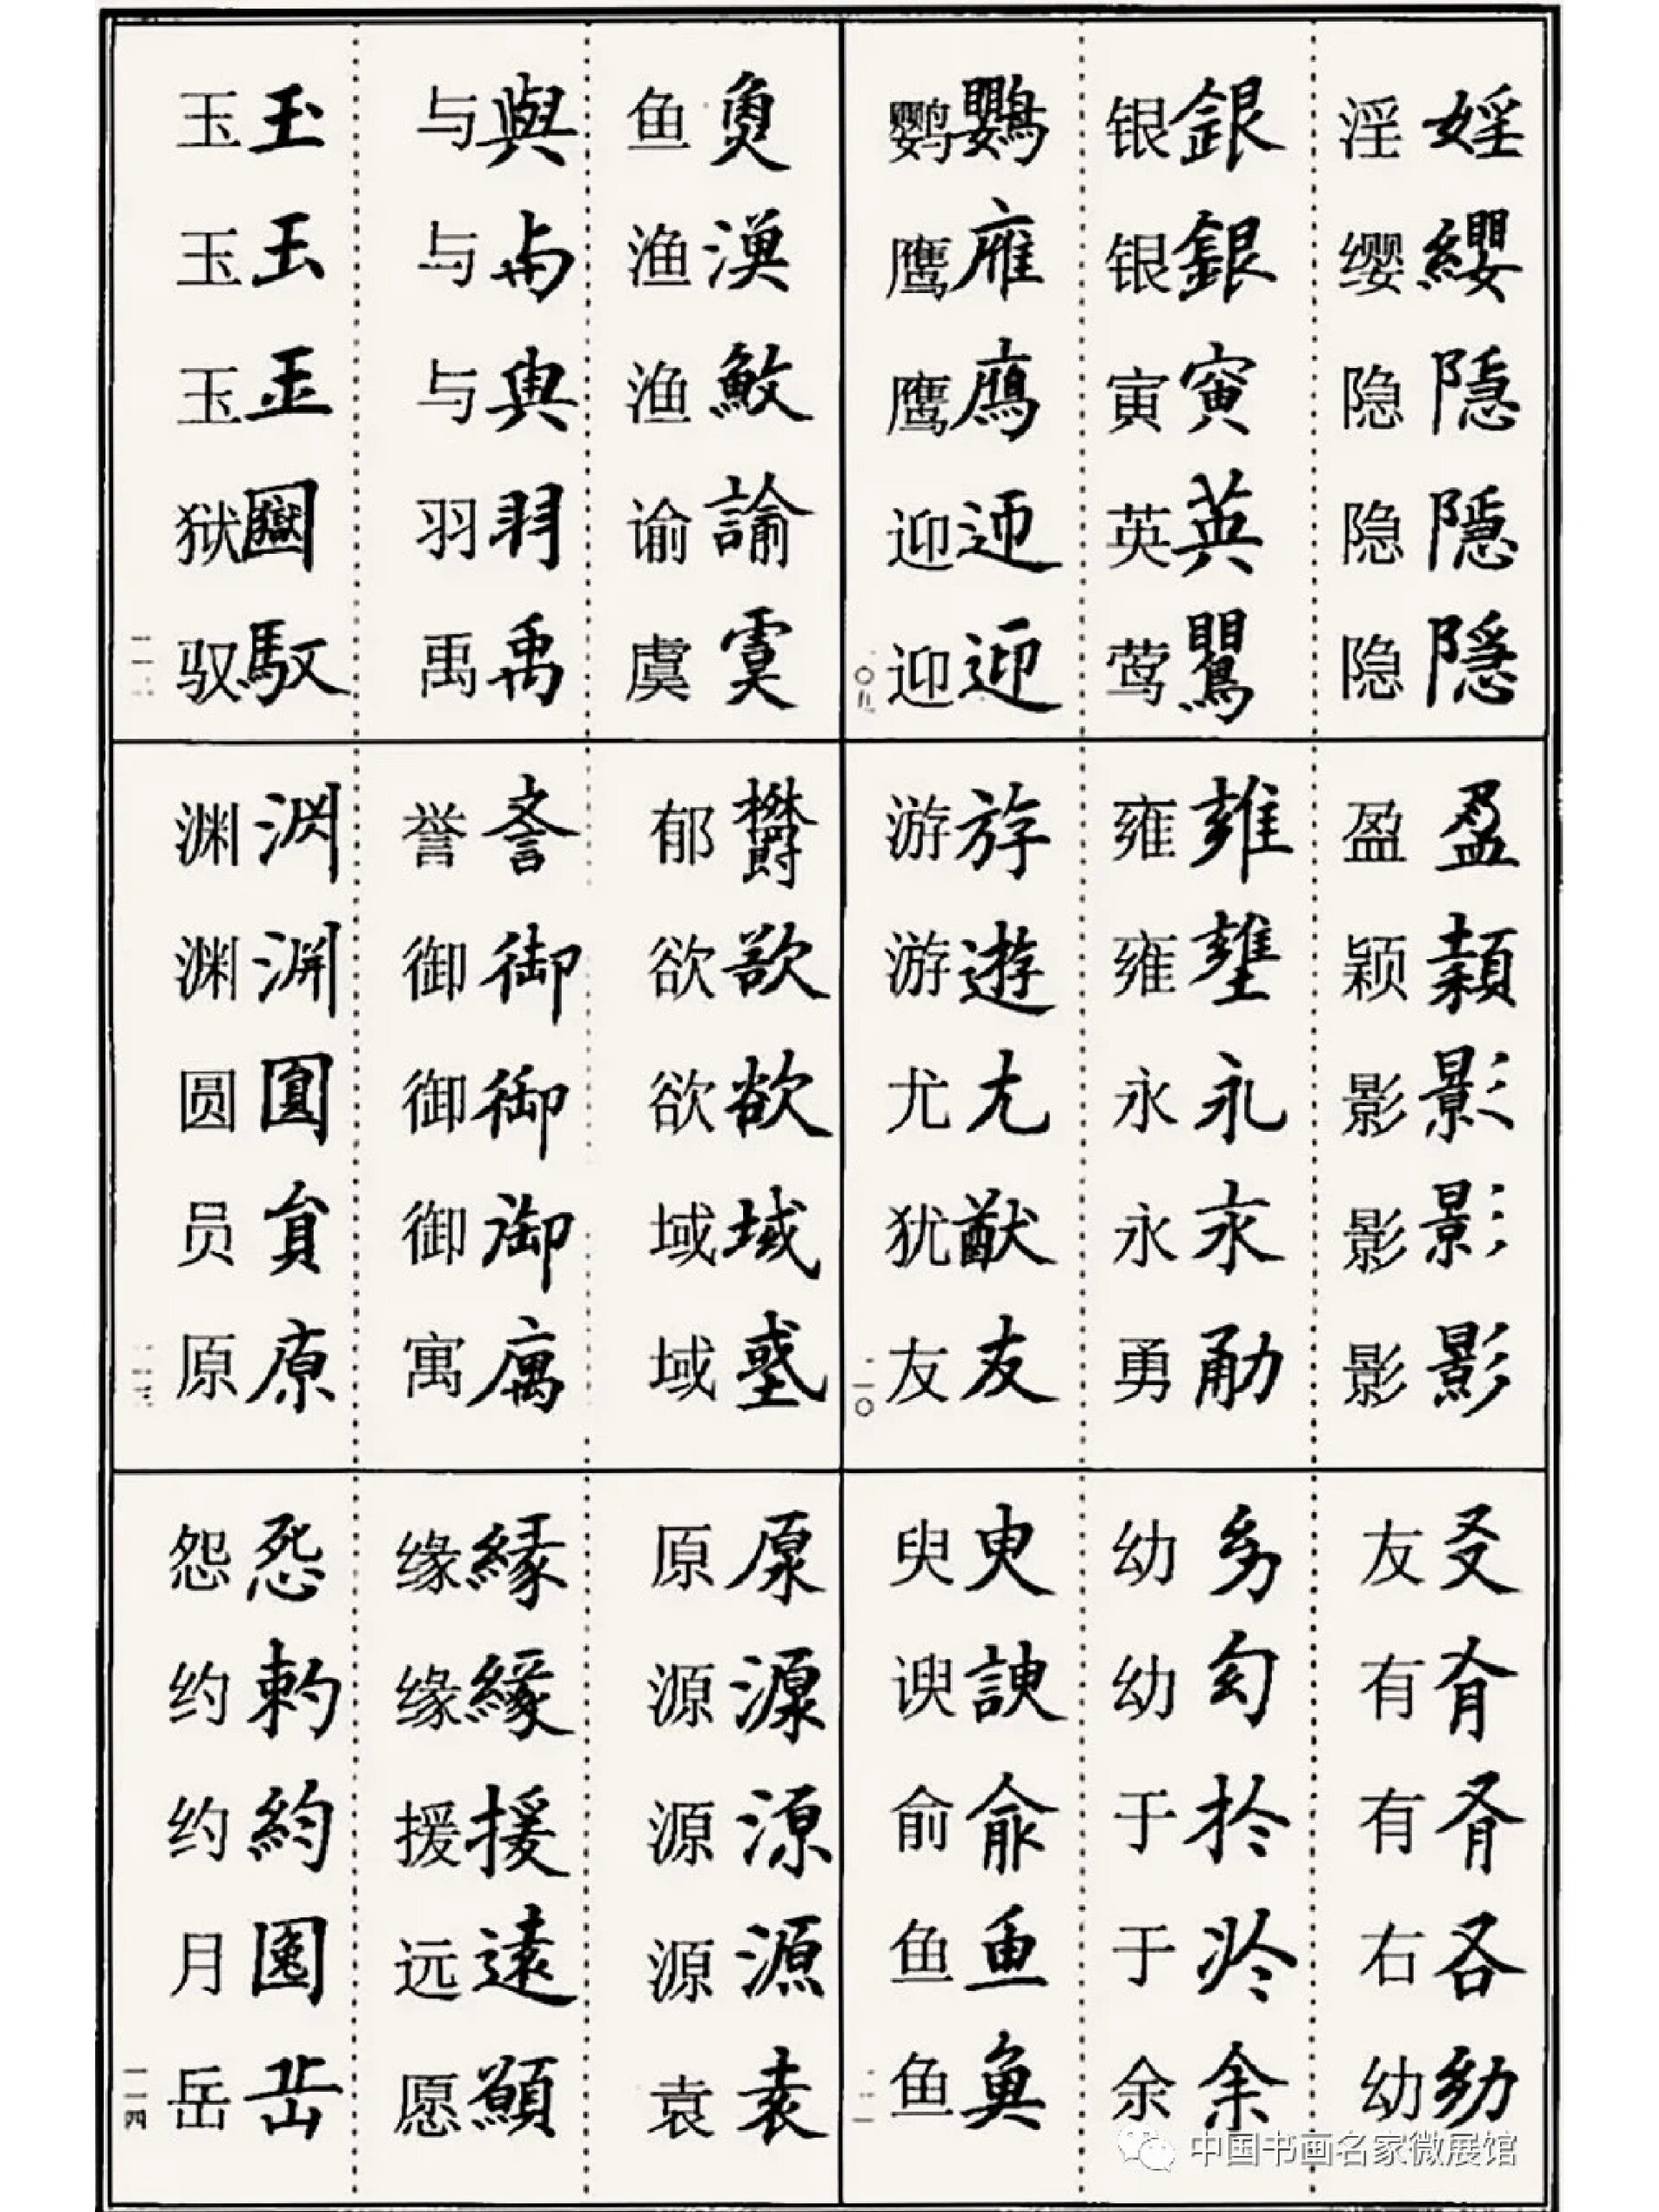 婬纓隱隱隱
淫缨隐隐隐
銀銀寅英鸎
银银寅英莺
鸚鴈迎迎
鹦鹰鹰迎迎
盈穎影影影
盈颖影影影
雍永永勇
雍雍永永勇
游遊尤猷友
游游尤犹友
友有有右幼
友有有右幼
幼幼於於余
幼幼于于余
臾諛俞魚魚
臾谀俞鱼鱼
魚漁諭虞
鱼渔渔谕虞
與與與羽禹
与与与羽禹
玉玉玉馭
玉玉玉狱驭
欝欲欲域域
郁欲欲域域
誉御御御寓
誉御御御寓
渊淵圓員原
渊渊圆员原
原源源源袁
原源源源袁
緣緣援遠願
缘缘援远愿
怨約約岳
怨约约月岳
一一四
中国书画名家微展馆